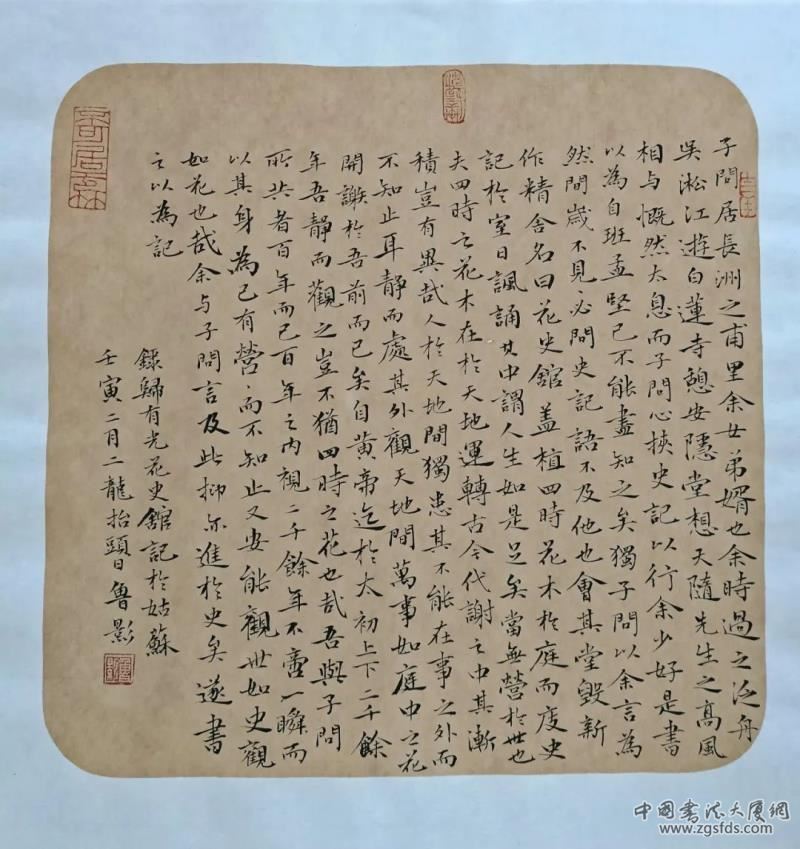 子問居長洲之甫里余女弟婿也余時過之泛舟
吳淞江遊白蓮寺憩安隱堂想天隨先生之高風
相与慨然太息而子問必挾史記以行余少好是書
以為自班孟堅已不能盡知之矣獨子問以余言為
然間歲不見必問史記語不及他也會其堂毀新
作精舍名曰花史館蓋植四時花木於庭而庋史
記於室日諷誦其中謂人生如是足矣當無營於世也
夫四時之花木在於天地運轉古今代謝之中其漸
積豈有異哉人於天地間獨患其不能在事之外而
不知止耳靜而處其外觀天地間萬事如庭中之花
開謝於吾前而已矣自黃帝迄於太初上下二千餘
年吾靜而觀之豈不猶四時之花也哉吾與子問
所共者百年而已百年之內視二千餘年不啻一瞬而
以其身為己有營〻而不知止又安能觀世如史觀
如花也哉余与子問言及此抑亦進於史矣遂書
之以為記
錄歸有光花史館記於姑蘇
壬寅二月二龍抬頭日魯影
中國書法大厦網
www.zgsfds.com